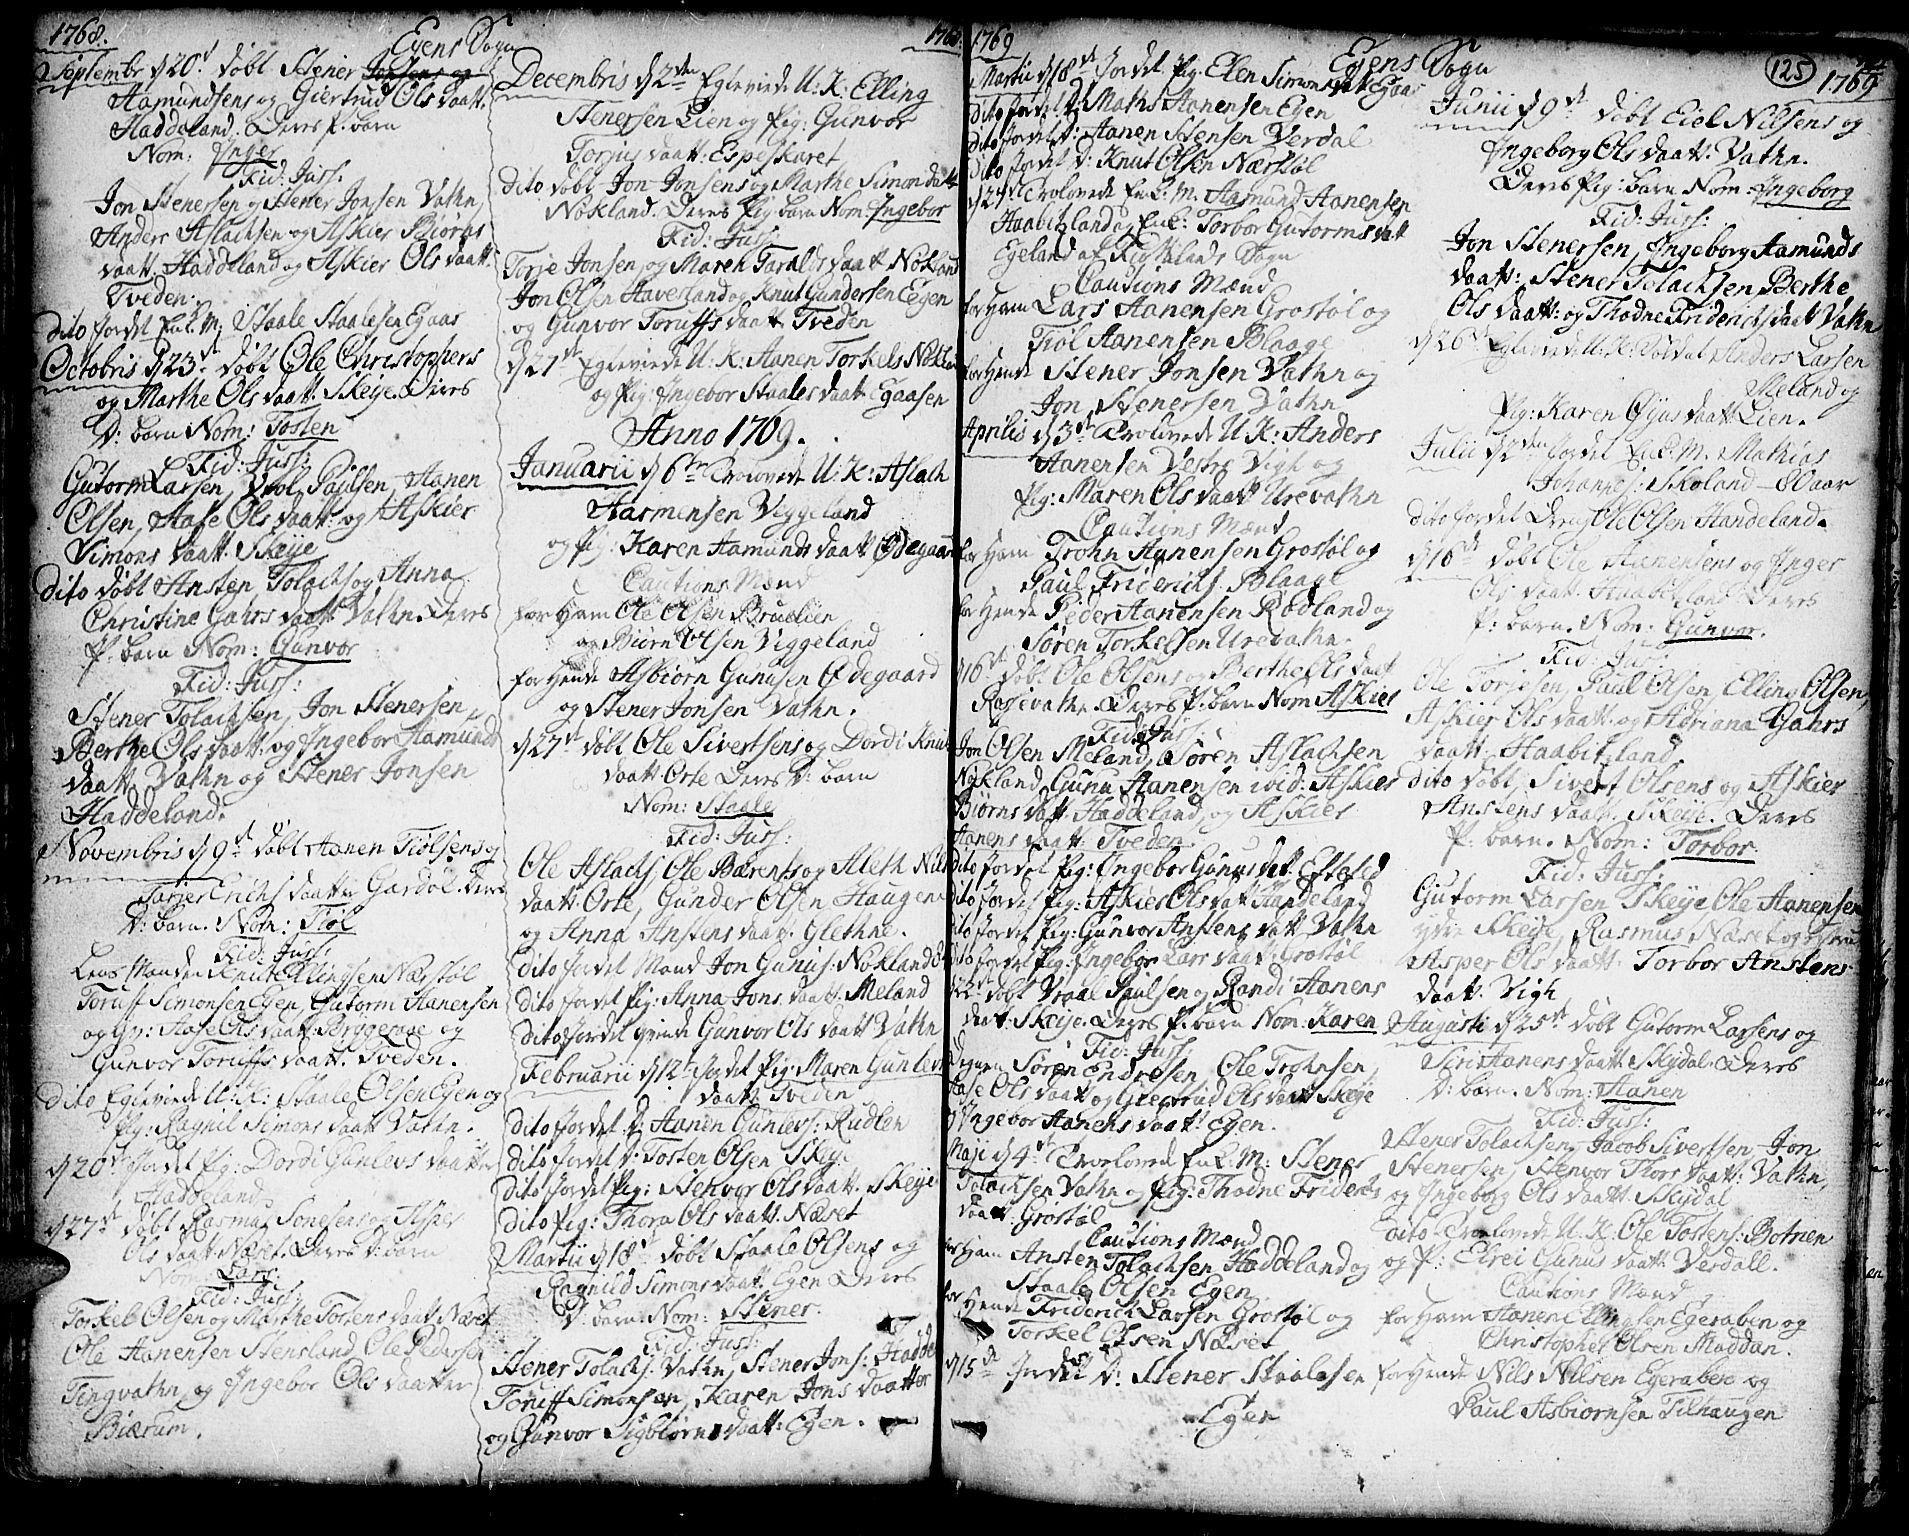 1768.
Egens Sogn
Septembr d 20.d døbt Stener Jonsens og
Aamundsens og Giertrud Ols daatt.
Haddeland. Deres P. barn
Nom: Inger
Fid: Juss:
Jon Stenersen og Stener Jonsen Vathn,
Anders Aslachsen og Askier Biørns
daatt. Haddeland og Askier Ols daatt.
Tveden.
dito Jordet Enk. M: Staale Staalesen Egaas
Octobris d 23.d døbt Ole Christophers
og Marthe Ols daatt. Skeye. Deres
D: barn Nom: Tosten
Fid: Juss:
Gutorm Larsen, Vraal Paulsen, Aanen
Olsen, Aase Ols daatt: og Askier
Simons daatt. Skeye
dito døbt Ansten Tolachs og Anna
Christine Gahrs daatt Vathn. Deres
P: barn Nom: Gunvor
Fid: Juss:
Stener Tolachsen, Jon Stenersen,
Berthe Ols daatt: og Ingebor Aamunds
daatt. Vathn og Stener Jonsen
Haddeland.
Novembris d 9.d døbt Aanen Tiølsens og
Tarjer Erichs daatt. Gardøl. Deres
D: barn. Nom: Tiøl
Fid: Juss:
Lens Manden Knut Ellingsen Nærstøl
Toruff Simonsen Egen, Gutorm Aanensen
og Aase Ols daatt. Bryggeraae og
Gunvor Toruffs daatt. Tveden.
dito Egteviede U: K: Staale Olsen Egen og
Pig: Ragnil Simons daatt Vathn.
d 20.d Jordet Pig: Dordi Gunlevs daatter
Haddeland
d 27.d døbt Rasmus Sonesens og Asper
Ols daatt Næset. Deres D: barn
Nom: Lars.
Fid: Juss:
Torkel Olsen og Marthe Tostens daatt Næset
Ole Aanensen Stensland, Ole Pedersen
Tingvathn og Ingebor Ols daatter
Biærum.
Decembris d 2.den Egteviede U: K: Elling
Stenersen Lien og Pig: Gunvor
Torjus daatt: Espeskaret
dito døbt Jon Jonsens og Marthe Simons datt
Nøkland. Deres Pig barn Nom: Ingebor
Fid: Juss:
Torje Jonsen, og Maren Taralds daatt Nøkland
Jon Olsen Haverland og Knut Gundersen Egen
og Gunvor Toruffs daatt Tveden
d 27.d Egteviede U: K: Aanen Torkels Nøkland
og Pig: Ingebor Staales daatt. Egaasen
Anno 1769.
Januarii d 6.te Trolovede U: K: Aslach
Aasmensen Viggeland
og Pig: Karen Aamunds daatt Ødegaard
Cautions Mænd
for Ham Ole Olsen Bruelien
og Biørn Olsen Viggeland
for Hende Asbiørn Gunusen Ødegaard
og Stener Jonsen Vathn.
d 27.d døbt Ole Sivertsens og Dordi Knuts
daatt Orte Deres D: barn
Nom: Staale
Fid: Juss:
Ole Aslachs, Ole Bærents og Aleth Nils
daatt. Orte, Gunder Olsen Haugen
og Anna Anstens daatt. Glethne.
dito Jordet Mand Jon Gunus: Nøkland
dito Jordet Pig: Anna Jons daatt. Meland
dito Jordet qvinde Gunvor Ols daatt Vathn
Februarii d 12.te Jordet Pig: Maren Gunlevs
daatt Tveden
dito Jordet D: Aanen Gunlevs: Rudlen
dito Jordet D: Tosten Olsen Skeye
dito Jordet Pig: Stenvor Ols daatt. Skeye
dito Pig: Thora Ols daatt. Næset
Martii d 18.d døbt Staale Olsens og
Ragnild Simons daatt. Egen Deres
D: barn Nom: Stener.
Fid: Juss:
Stener Tolachs. Vathn, Stener Jons: Hadde
Toruff Simonsen, Karen Jons daatter
og Gunvor Sigbiørns daatt: Egen.
1769
Egens Sogn
Martii d 18.d Jordet Pig: Elen Simons datt Egaas
dito Jordet D: Mathis Aanensen Egen
dito Jordet D: Aanen Stensen Verdal
dito Jordet D: Knut Olsen Nærstøl
d 27.d Trolovede Enk. M. Aamund Aanensen
Haabitzland og Enk: Torbor Gutorms datt
Egeland af Fiotlands Sogn
Cautions Mænd
for Ham Lars Aanensen Grostøl og
Tiøl Aanensen Blaage
for Hende Stener Jonsen Vathn og
Jon Stenersen Vathn
Aprilis d 3.d Trolovede U. K: Anders
Aanensen Vestre Vigh og
Pig: Maren Ols daatt Urevathn
Cautions Mænd
for Ham Trohn Aanensen Grostøl og
Paul Friderichs Blaage
for Hende Peder Aanensen Rødland og
Søren Torkelsen Urevathn.
d 16.d døbt Ole Olsens og Berthe Ols daatt
Rosevathn Deres P. barn Nom Askier
Fid: Juss:
Jon Olsen Meland, Søren Aslachsen
Nøkland, Gunu Aanensen ibid: Askier
Biørns datt. Haddeland, og Askier
Aanens daatt. Tveden
dito Jordet Pig: Ingebor Gunus datt. Eftestd
dito Jordet Pig: Askier Ols datt Haddeland
dito Jordet Pig: Gunvor Anstens datt Vathn
dito Jordet Pig: Ingebor Lars daatt Grostøl
døbt Vraal Paulsen og Randi Aanens
daatt: Skeye. Deres P. barn Nom: Karen
Fid: Juss:
Degnen Søren Endresen, Ole Trohnsen,
Aase Ols daatt og Giertrud Ols datt Skeye
og Ingebor Aanens daatt: Egen.
Maji d 4.d Trolovede Enk. M: Stener
Tolachsen Vathn og Pig: Thodne Friderichs
daatt Grostøl
Cautions Mænd
for Ham Ansten Tolachsen Haddeland og
Staale Olsen Egen
for Hende Friderich Larsen Grostøl og
Torkel Olsen Næset
d 15.de Jordet D: Stener Staalesen
Egen
125
1769
Junii d 9.d døbt Eiel Nilsens og
Ingeborg Ols daatt. Vathn.
Deres Pig: barn Nom: Ingeborg
Fid: Juss:
Jon Stenersen, Ingeborg Aamunds
daatt: Stener Tolachsen Berthe
Ols daatt: og Thodne Friderichs daatt Vathn
d 26.d Egteviede U: K: Anders Larsen
Meland og
Pig: Karen daatt. Lien.
Julii d 2.den Jordet Enk. M. Mathias
Johannes: Skoland – 80 aar
dito Jordet Dreng Ole Olsen Handeland.
d 16.d døbt Ole Aanensens og Inger
Ols daatt. Haabitzland Deres
P: barn. Nom: Gunvor.
Fid: Juss:
Ole Torjesen, Paul Olsen, Elling Olsen,
Askier Ols daatt. og Adriana Gahrs
daatt. Haabitzland
dito døbt, Sivert Olsens og Askier
Anstens daatt. Skeye. Deres
P: barn. Nom: Torbor
Fid: Juss:
Gutorm Larsen Skeye Ole Aanensen
Skeye, Rasmus Næset og
Asper Ols daatt. Torbor Anstens
daatt. Vigh
Augusti d 25.d døbt Gutorm Larsens og
Siri Aanens daatt. Skydal. Deres
D: barn. Nom: Aanen
Fid: Juss:
Stener Tolachsen, Jacob Sivertsen, Jon
Stenersen, Stenvor Thors daatt: Vathn,
og Ingeborg Ols daatt. Skeydal
dito Trolovede U. K. Ole Tostens: Botnen
og P: Elrei Gunus daatt. Verdall.
Cautions Mænd
for Ham Aanen Ellingsen Egeraben og
Christopher Olsen Maddan.
for Hende Nils Nilsen Egeraben og
Paul Asbiørnsen Tilhaugen